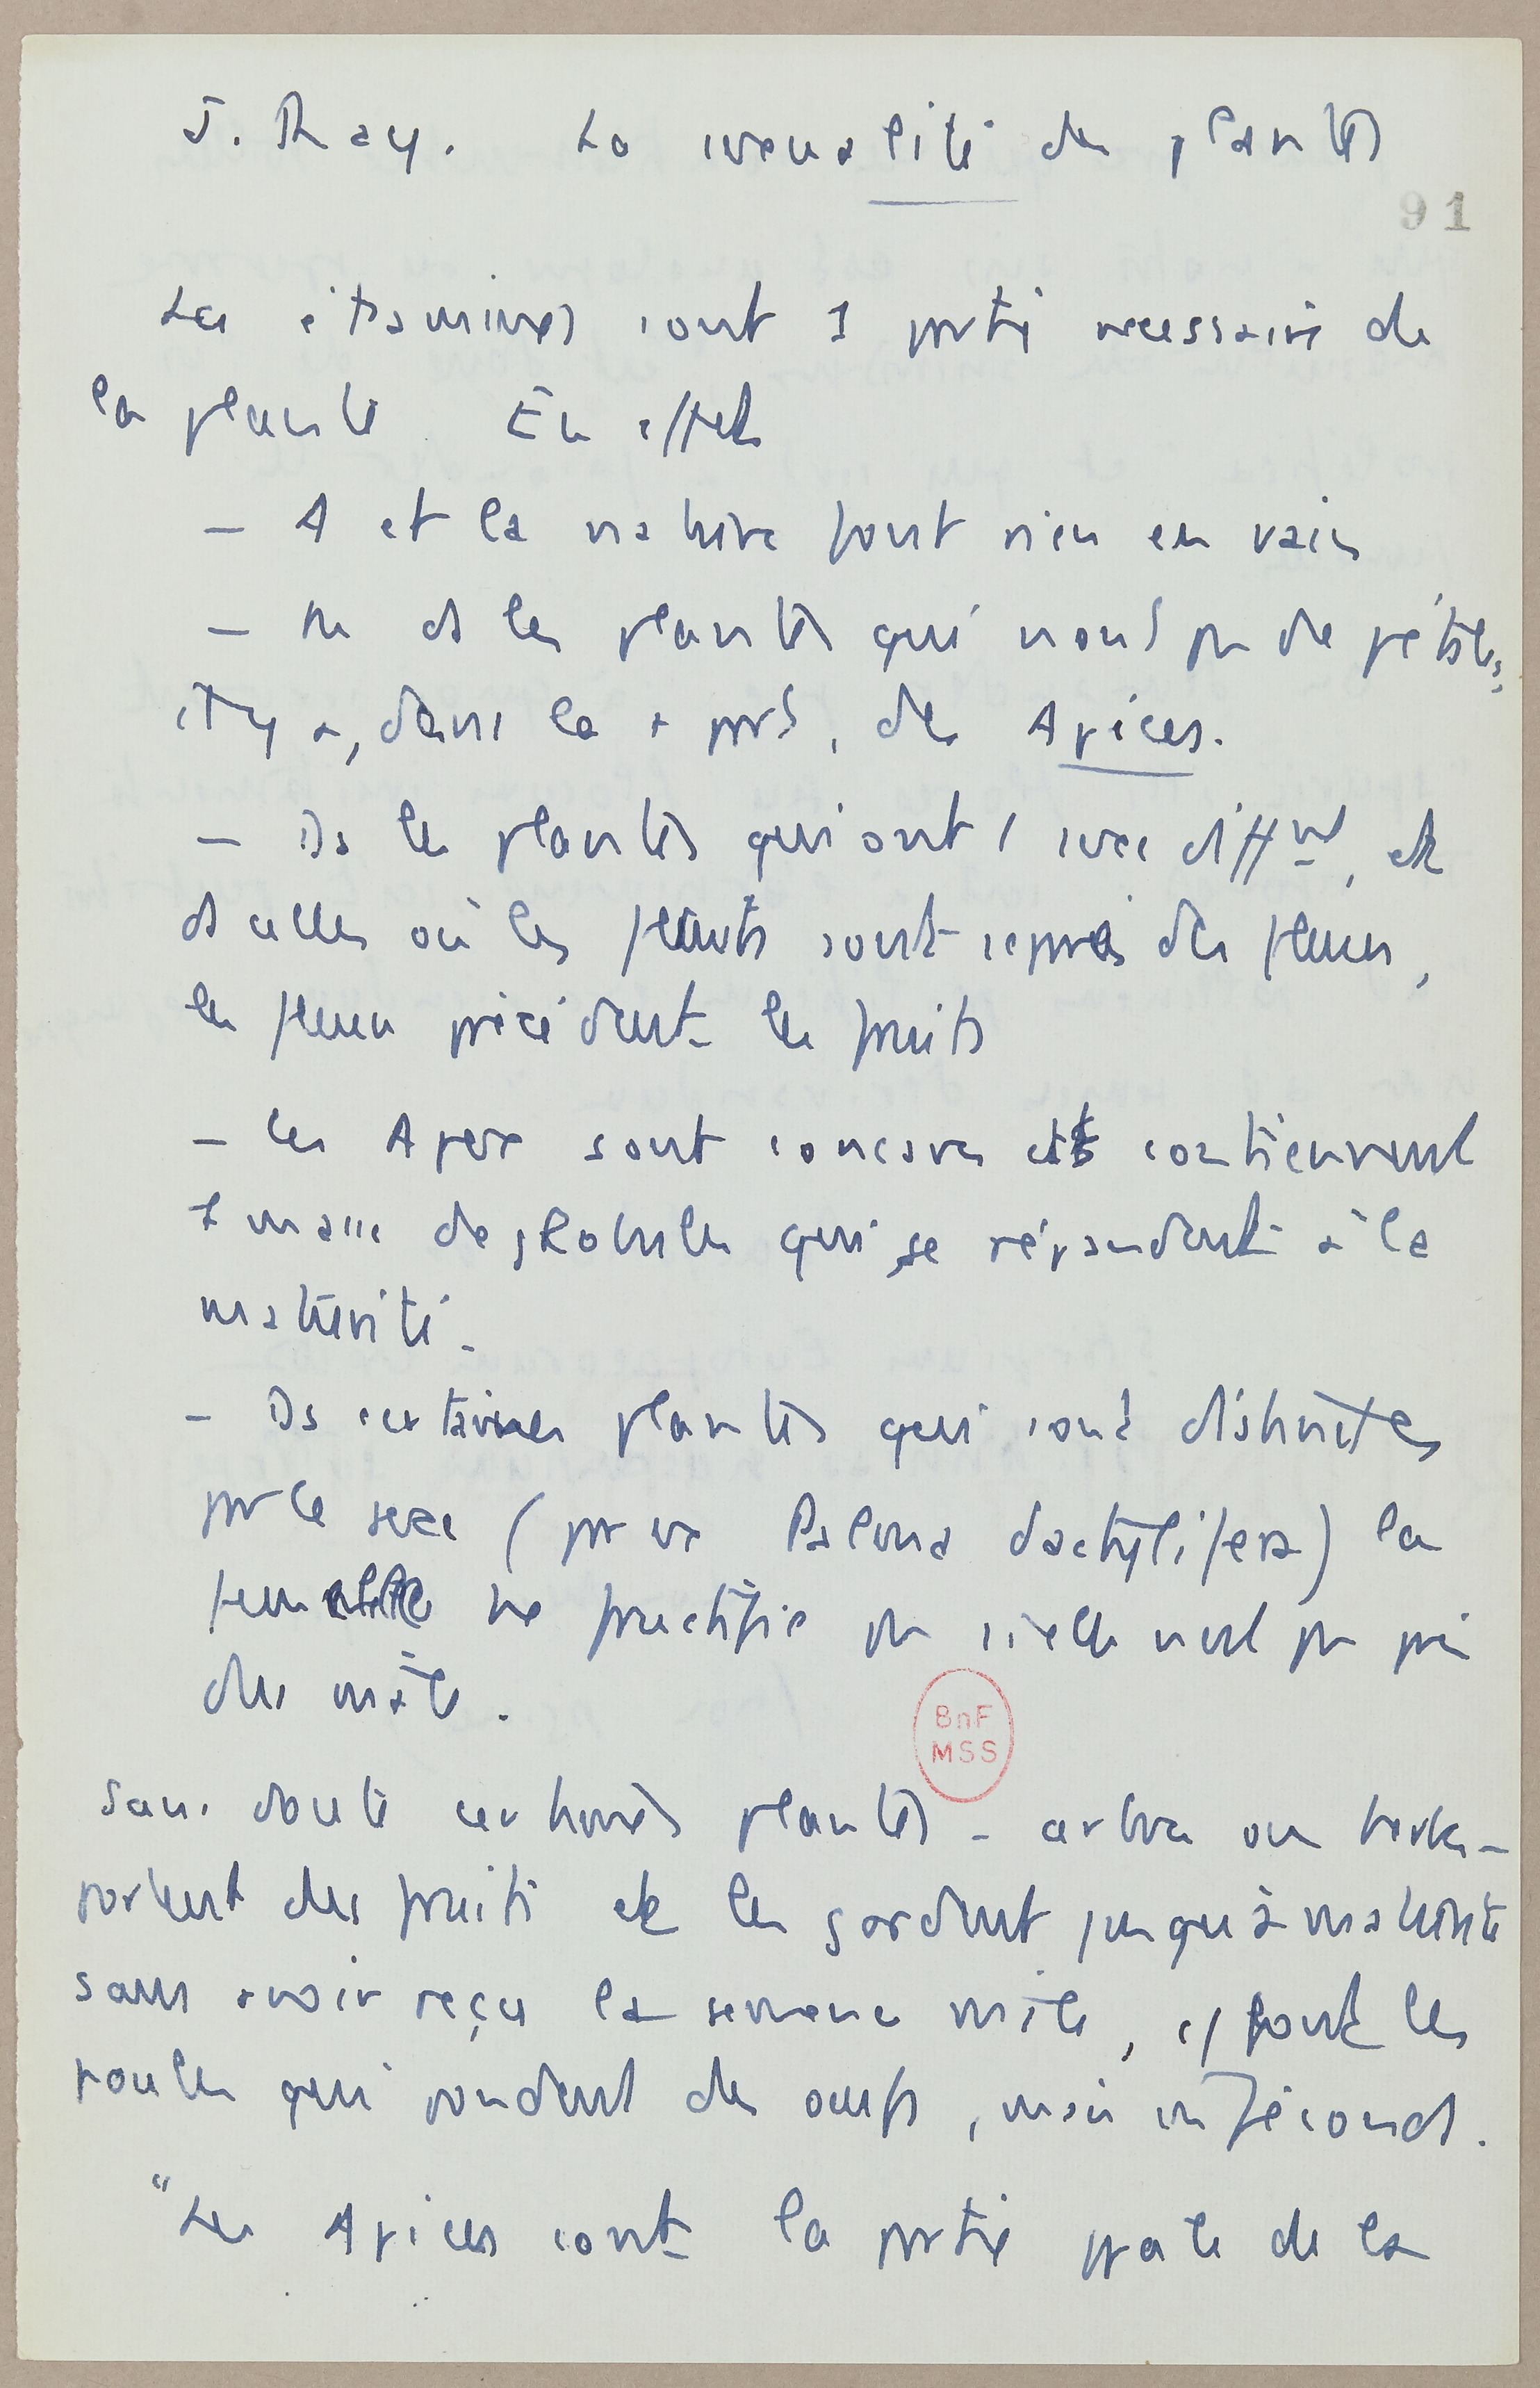 J. Ray. La sexualité des plantes
91
Les étamines sont 1 partie nécessaire de
la plante. En effet
- et la nature font rien en vain
- ds les plantes qui n'ont pas de pétales,
il y a, dans la + part, des Apices.
- Ds les plantes qui ont 1 sexe différent, et
ds celles où les fruits sont séparés des fleurs,
les fleurs précèdent les fruits
- les Apex sont concaves et contiennent
1 masse de globules qui se répandent à la
maturité.
- Ds certaines plantes qui sont distinctes
par le sexe (par ex Palma dactylifera) la
femelle ne fructifie pas si elle n'est pas près
du mâle.
Sans doute certaines plantes - arbres ou herbes -
portent des fruits et les gardent jusqu'à maturité
sans avoir reçu la semence mâle, cf font les
poules qui pondent des œufs, mais inféconds.
"Les Apices sont la partie ppale de la
BnF
MSS